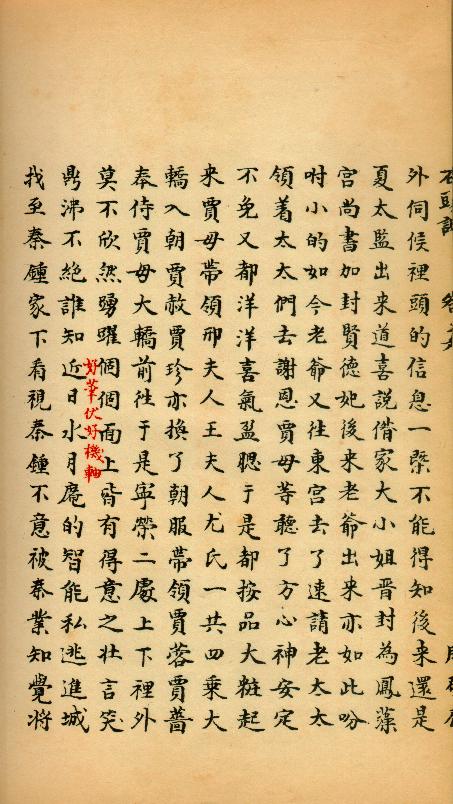 石頭記
外伺候裡頭的信息一槩不能得知後来還是
夏太監出来道喜說偺家大小姐晋封為鳳藻
宮尚書加封賢德妃後来老爺出来亦如此吩
咐小的如今老爺又往東宮去了速請老太太
領着太太們去謝恩賈母等聽了方心神安定
不免又都洋洋喜氣盈腮于是都按品大粧起
来賈母帶領邢夫人王夫人尤氏一共四乘大
轎入朝賈赦賈珍亦換了朝服帶領賈蓉賈薔
奉侍賈母大轎前往于是寧榮二處上下裡外
莫不欣然踴躍個個面上皆有得意之壮言笑
好筆伏好機軸
鼎沸不絕誰知近日水月庵的智能私逃進城
找至秦鍾家下看視秦鍾不意被秦業知覺将